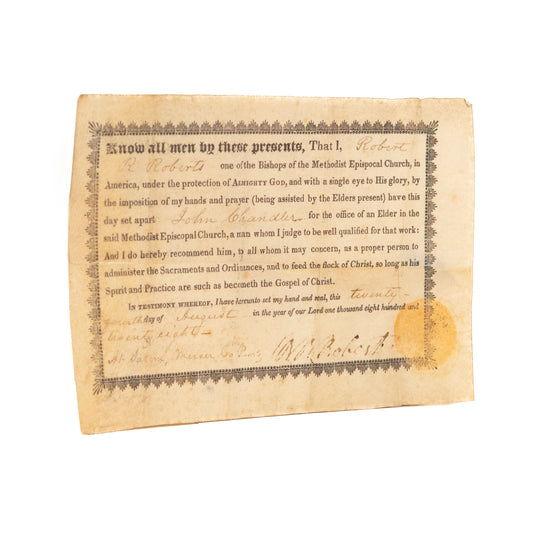 Know all men by these presents, That I, Robert
R Roberts one of the Bishops of the Methodist Epispocal Church, in
America, under the protection of ALMIGHTY GOD, and with a single eye to His glory, by
the imposition of my hands and prayer (being assisted by the Elders present) have this
day set apart John Chandler for the office of an Elder in the
said Methodist Episcopal Church, a man whom I judge to be well qualified for that work:
And I do hereby recommend him, to all whom it may concern, as a proper person to
administer the Sacraments and Ordinances, and to feed the flock of Christ, so long as his
Spirit and Practice are such as becometh the Gospel of Christ.
IN TESTIMONY WHEREOF, I have hereunto set my hand and seal, this twenty-
fourth day of August in the year of our Lord one thousand eight hundred and
twenty eight
At
R R Roberts